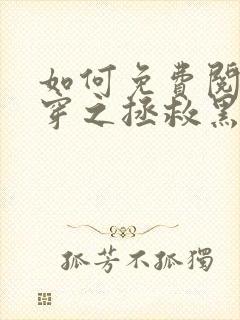 如何免費閱
穿之拯救黑
孤芳不孤獨